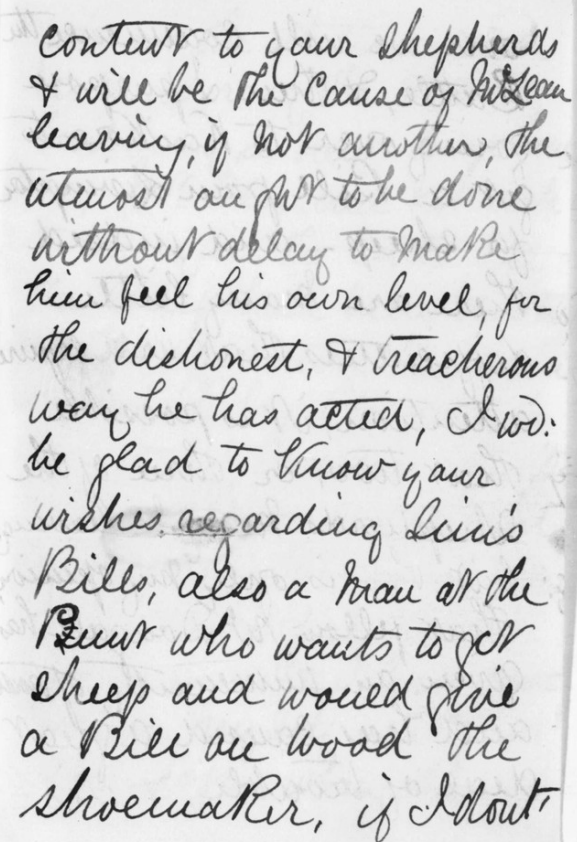 content to your shepherds
& will be the cause of McLean
leaving, if not another, the
utmost ought to be done
without delay to make
him feel his own level, for
the dishonest, & treacherous
way he has acted, I wd:
be glad to know your
wishes regarding Sim's
Bills, also a man at the
Punt who wants to get
sheep and would give
a Bill on Wood the
shoemaker, if I dont'